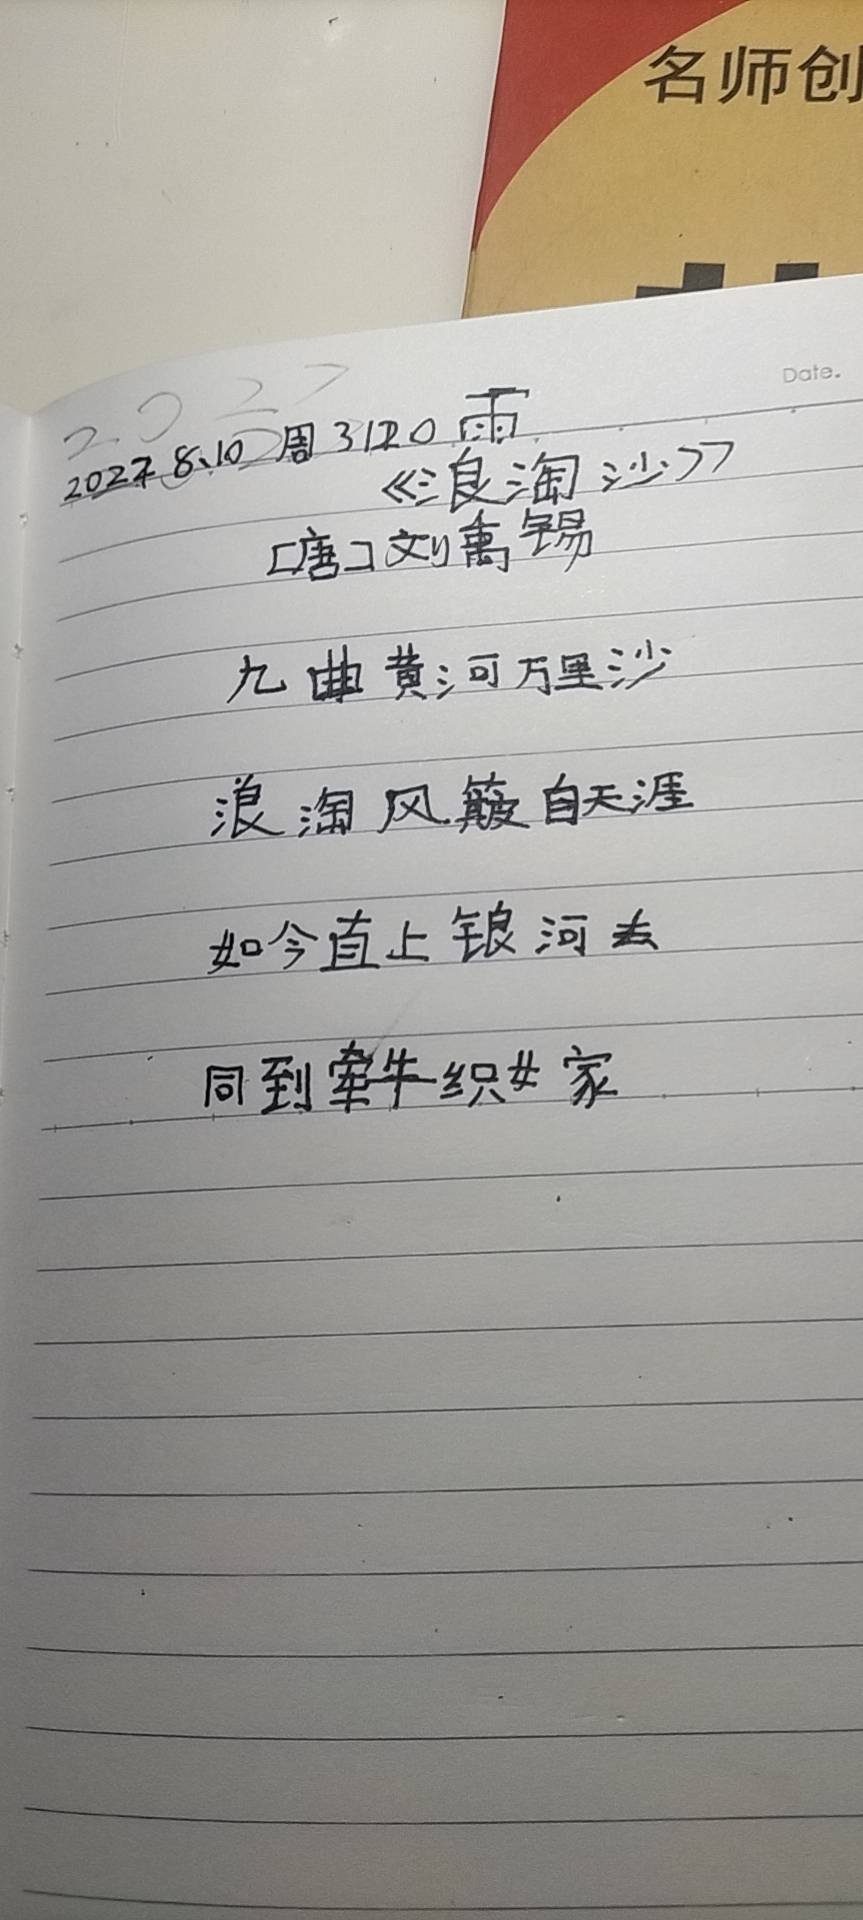 名师创
Date.
2027
2022 8.10 周3 1120 雨
《浪淘沙》
[唐]刘禹锡
九曲黄河万里沙
浪淘风簸自天涯
如今直上银河去
同到牵牛织女家